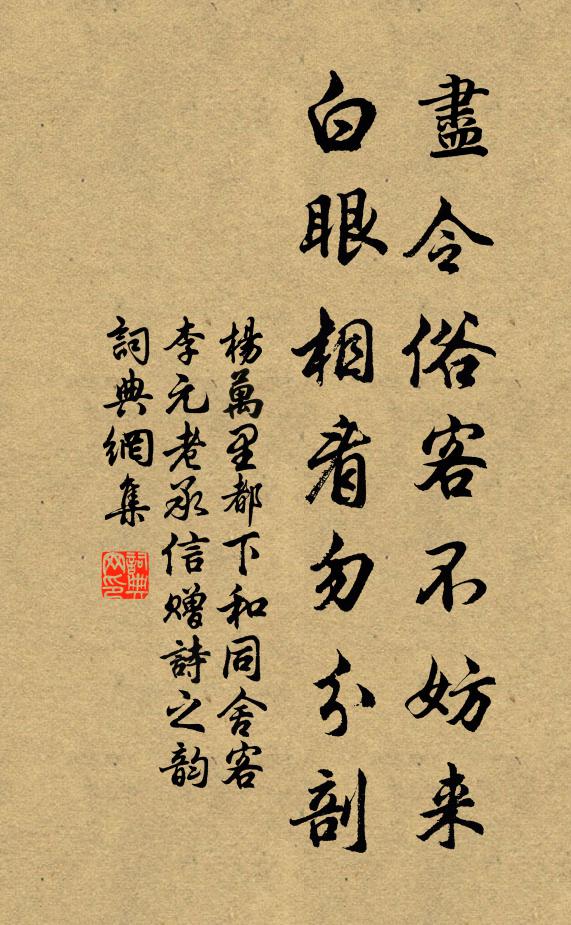 盡令俗客不妨来
白眼相看勿分剖
楊萬里都下和同舍客
李元老承信贈詩之韵
詞典網集
詞典网印